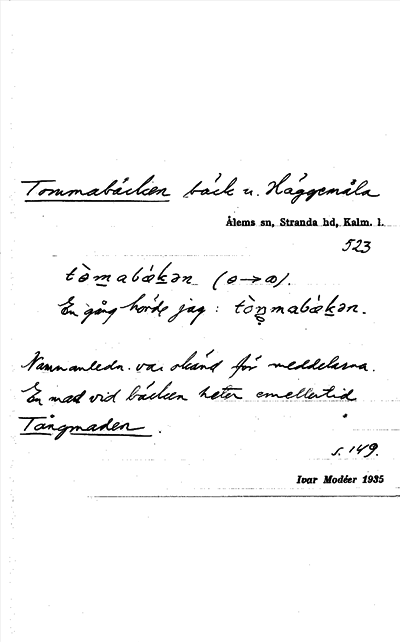 Tommabäcken bäck u. Häggemåla
Ålems sn, Stranda hd, Kalm. l.
523
tòmabǽkən (o→ɷ).
En gång hörde jag: tòŋmabǽkən.
Namnanledn. var okänd för meddelarna.
En mad vid bäcken heter emellertid
Tångmaden.
s. 149.
Ivar Modéer 1935